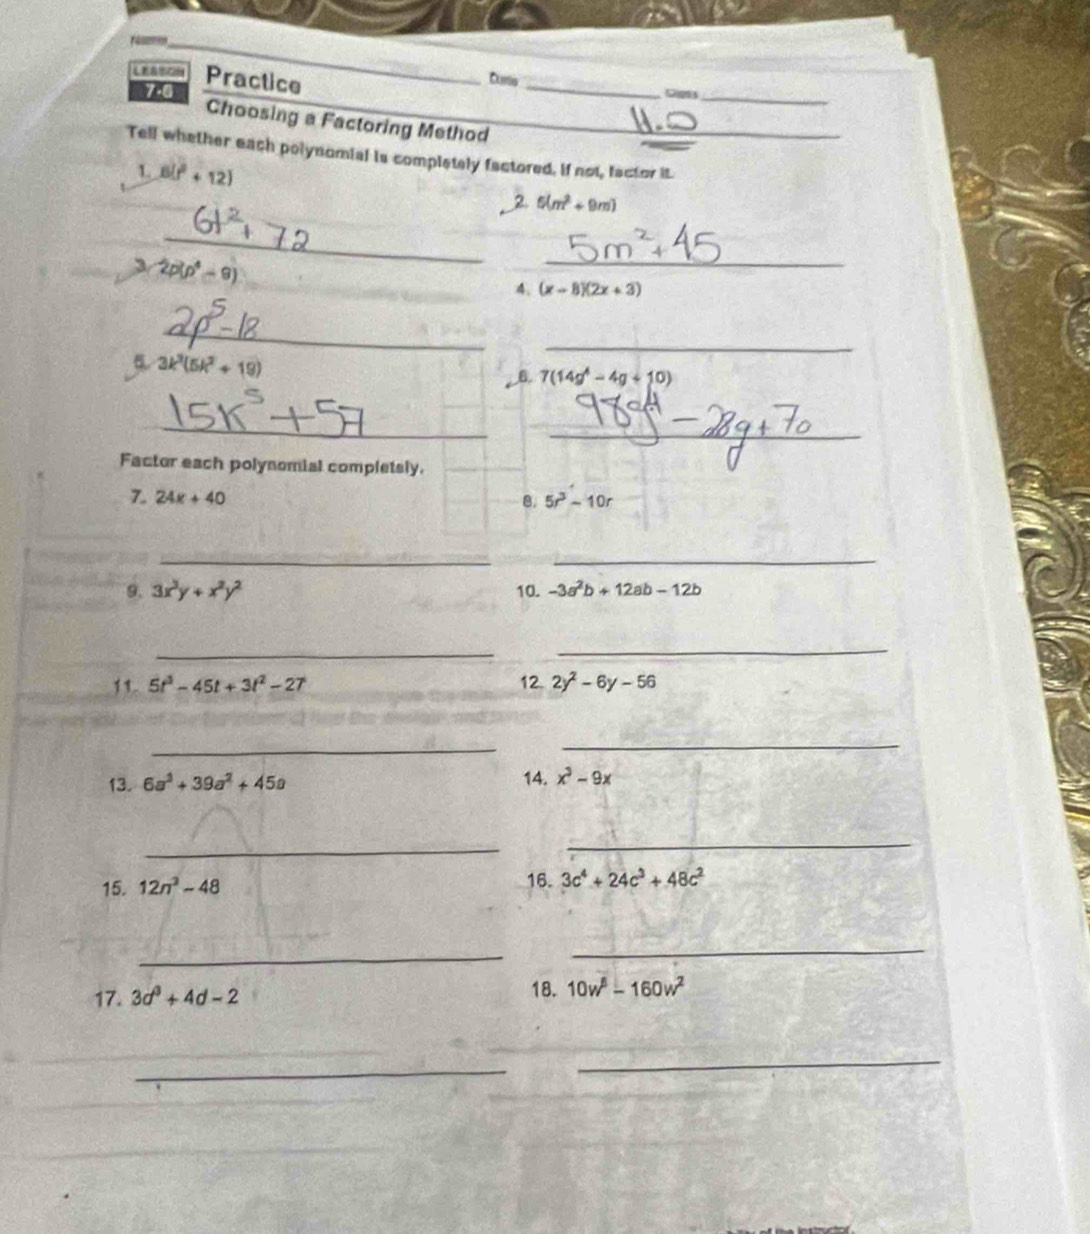 Name
LESSON
7-6
Practice
Date
Class
Choosing a Factoring Method
11.0
Tell whether each polynomial is completely factored. If not, factor it.
1. 6(t² + 12)
2. 5(m² + 9m)
6t² + 72
5m² + 45
3. 2p(p⁴ – 9)
4. (x – 8)(2x + 3)
2p⁵ - 18
5. 3k³(5k² + 19)
6. 7(14g⁴ – 4g + 10)
15k⁵ + 57
98g⁴ - 28g + 70
Factor each polynomial completely.
7. 24x + 40
8. 5r³ – 10r
9. 3x³y + x²y²
10. –3a²b + 12ab – 12b
11. 5t³ – 45t + 3t² – 27
12. 2y² – 6y – 56
13. 6a³ + 39a² + 45a
14. x³ – 9x
15. 12n³ – 48
16. 3c⁴ + 24c³ + 48c²
17. 3d³ + 4d – 2
18. 10w⁶ – 160w²
of the instructor.